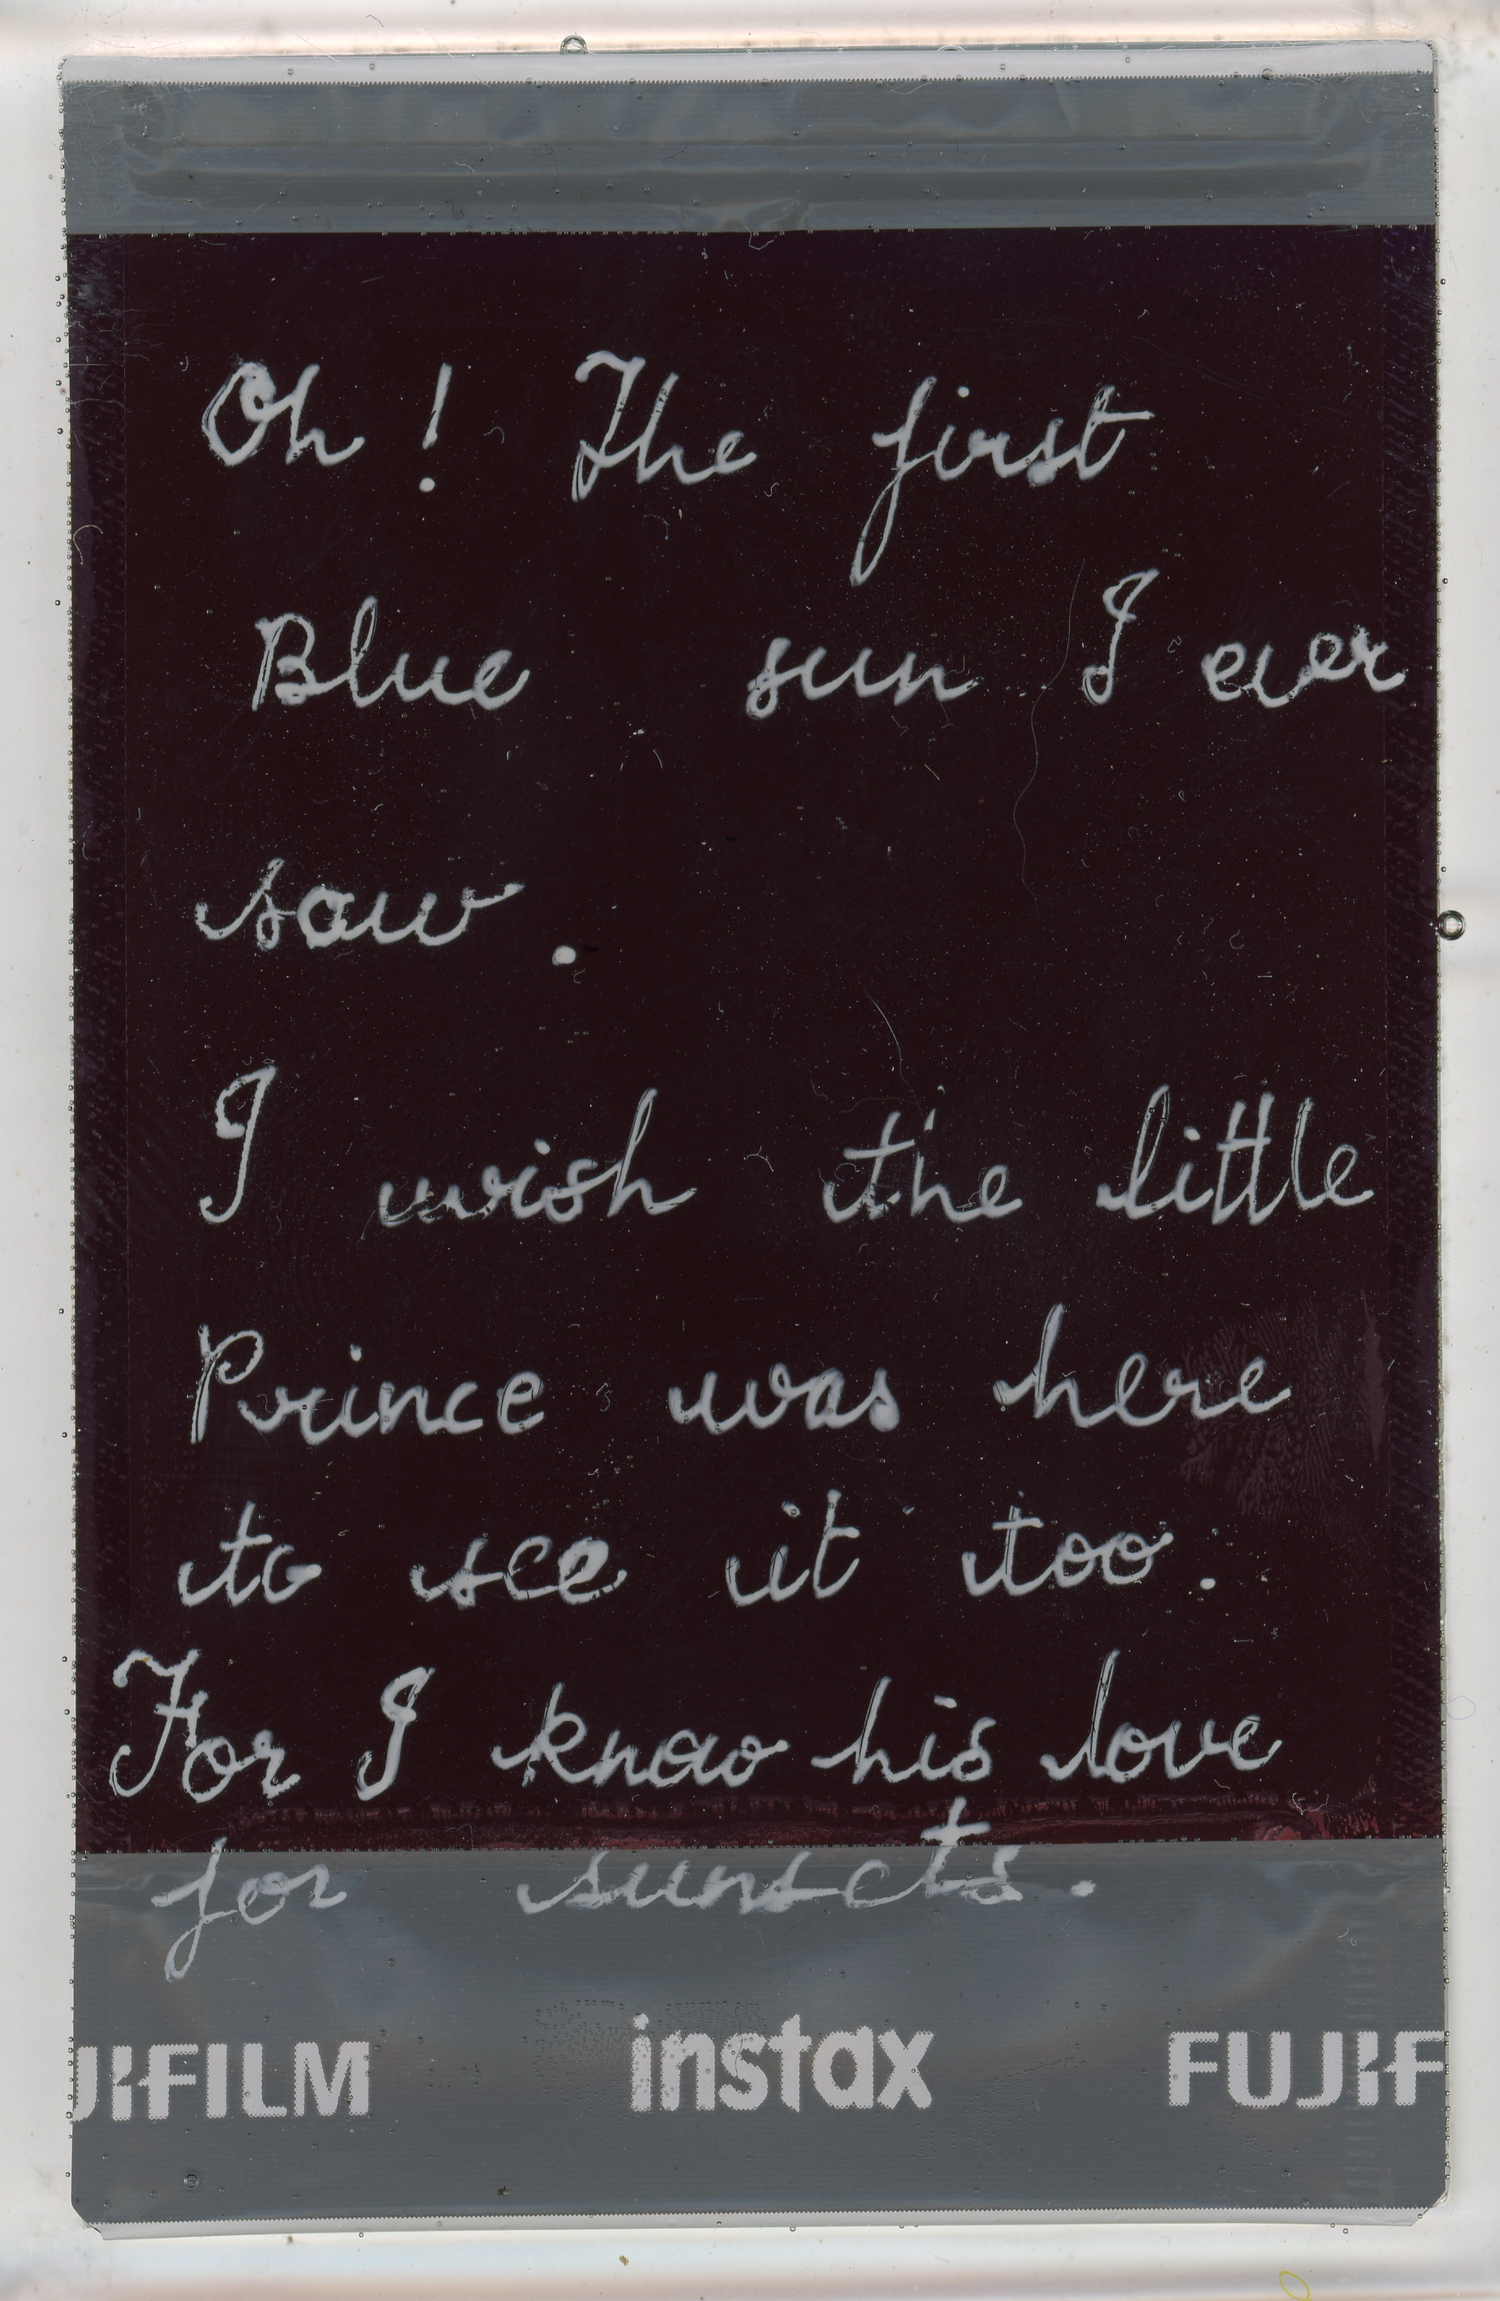 Oh! The first
Blue sun I ever
saw.
I wish the little
Prince was here
to see it too.
For I know his love
for sunsets.
JIFILM instax FUJIF